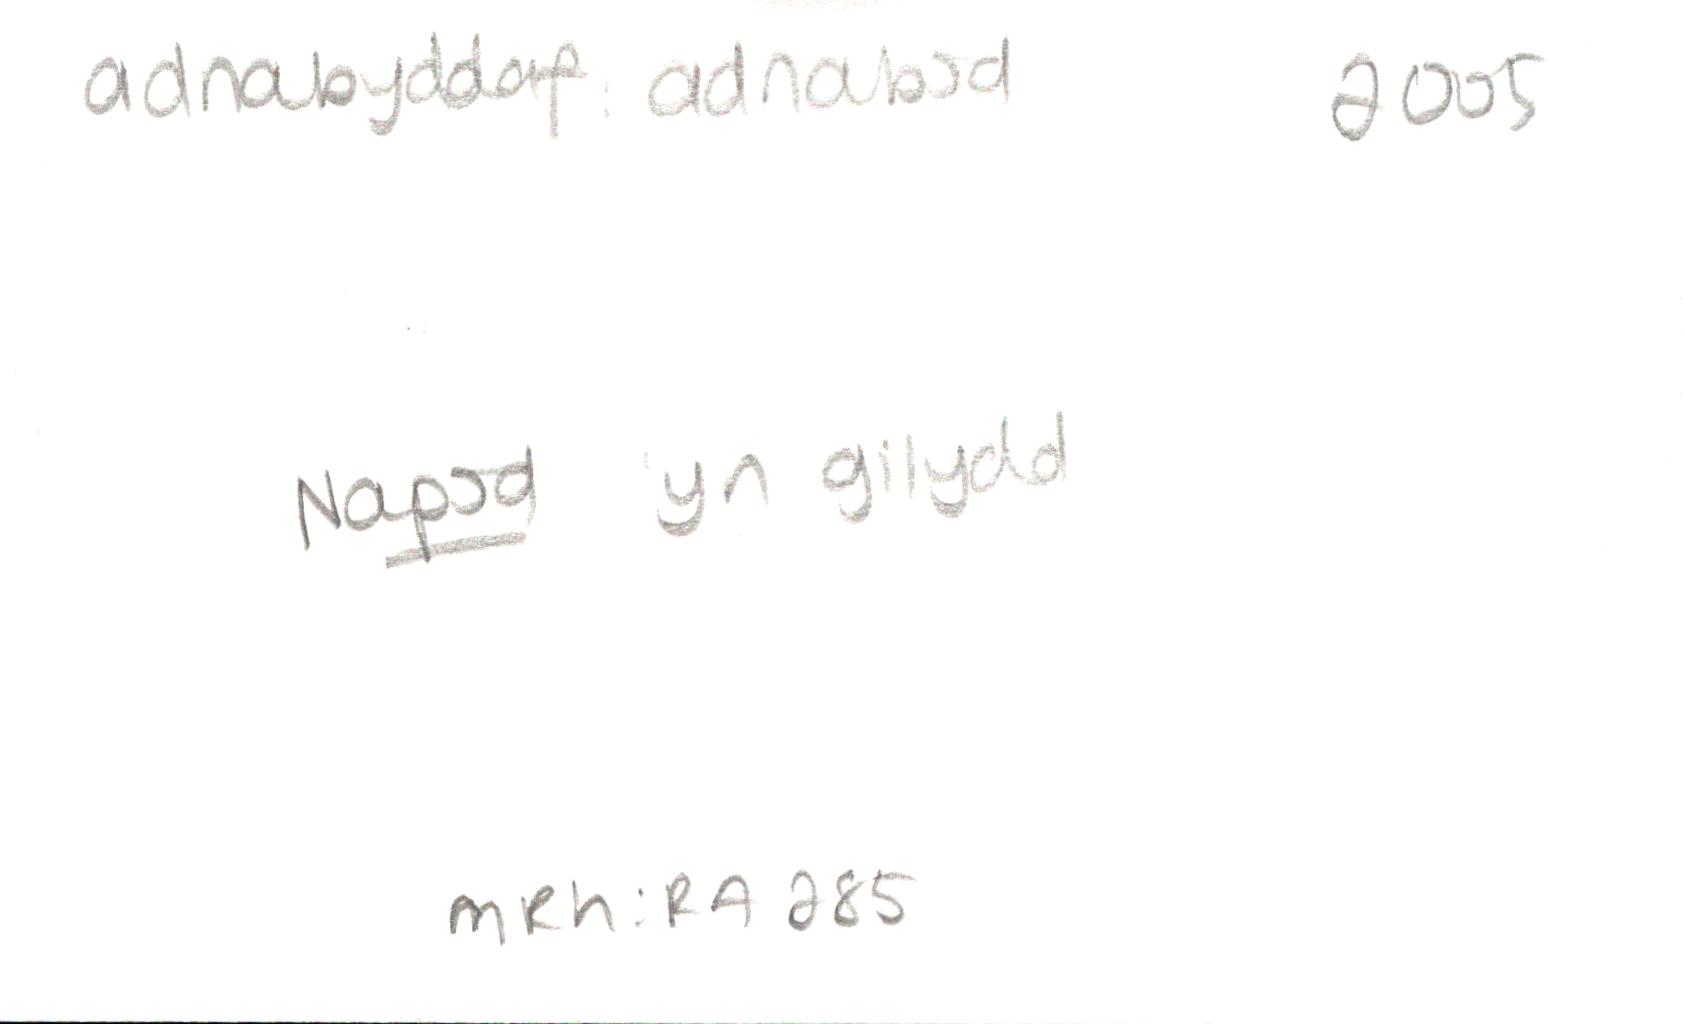 adnabyddaf: adnabod 2005
Napod yn gilydd
MRh: RA 285